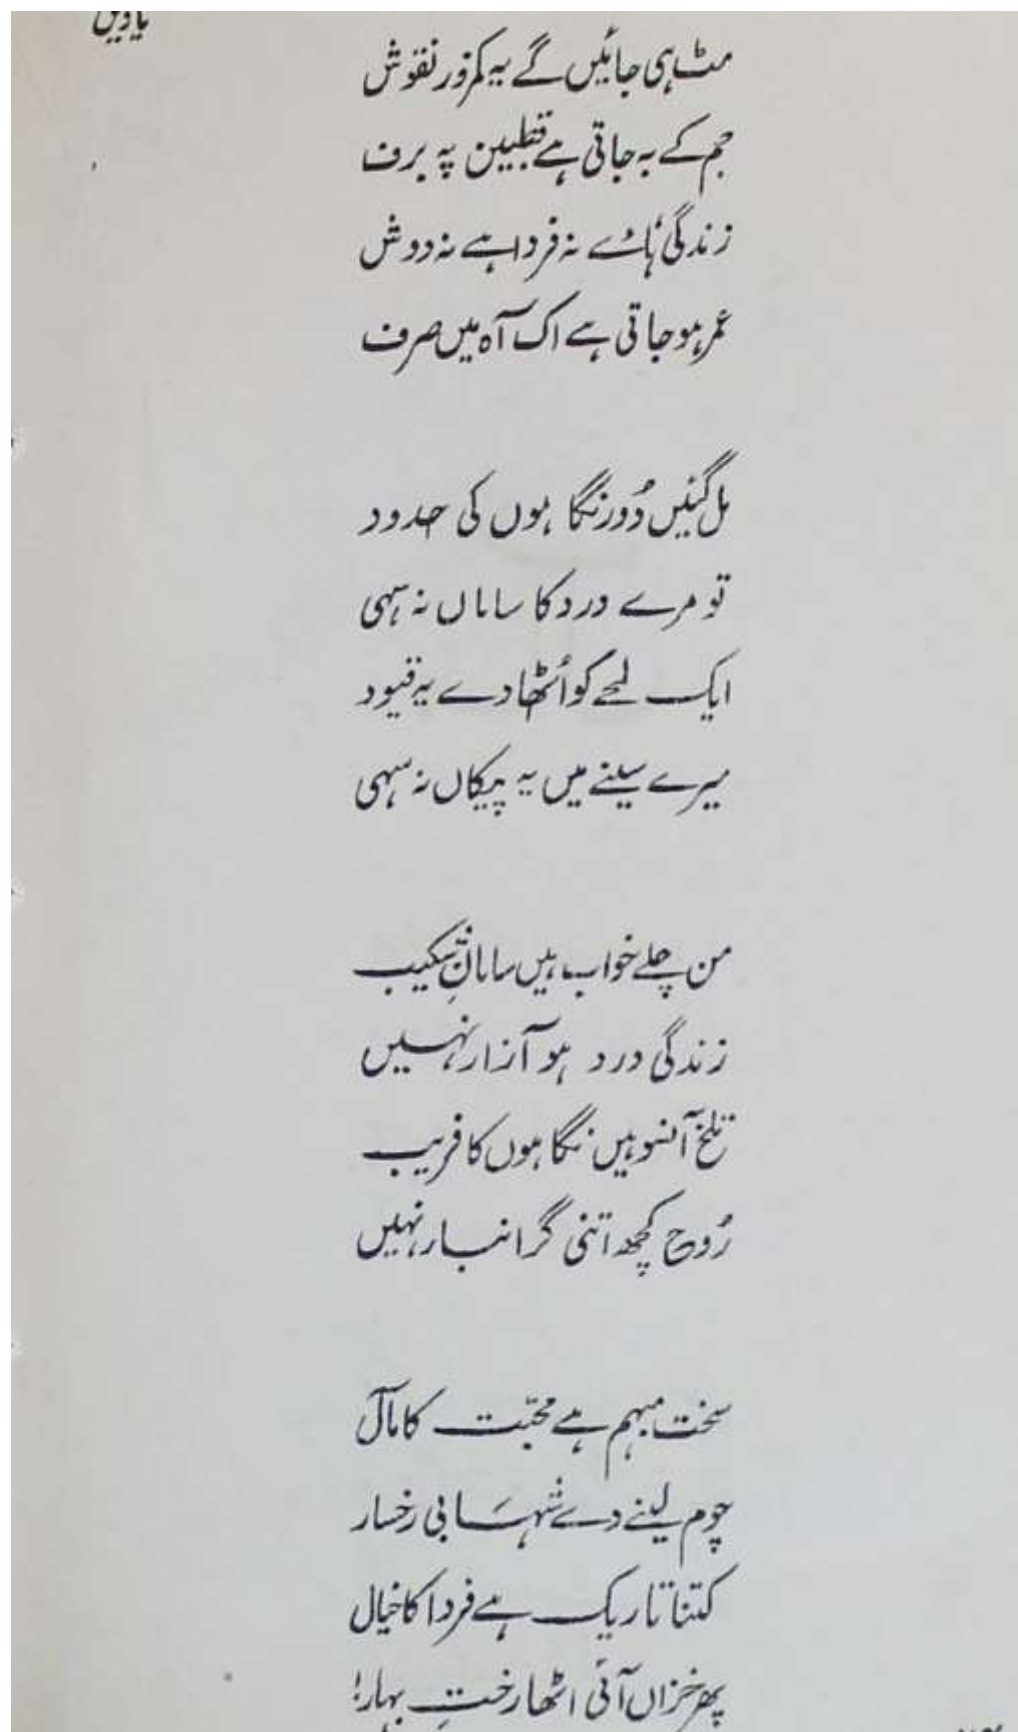 یادیں
مٹ ہی جائیں گے یہ کمزور نقوش
جم کے بہ جاتی ہے قطبین پہ برف
زندگی ہائے نہ فردا ہے نہ دوش
عمر ہو جاتی ہے اک آہ میں صرف
مل گئیں دُور نگاہوں کی حدود
تو مرے درد کا ساماں نہ سہی
ایک لمحے کو اُٹھا دے یہ قیود
میرے سینے میں یہ پیکاں نہ سہی
من چلے خواب ہیں سامانِ شکیب
زندگی درد ہو آزار نہیں
تلخ آنسو ہیں نگاہوں کا فریب
رُوح کچھ اتنی گرانبار نہیں
سخت مبہم ہے محبّت کا مآل
چوم لینے دے شہَابی رخسار
کتنا تاریک ہے فردا کا خیال
پھر خزاں آئی اٹھا رختِ بہار!